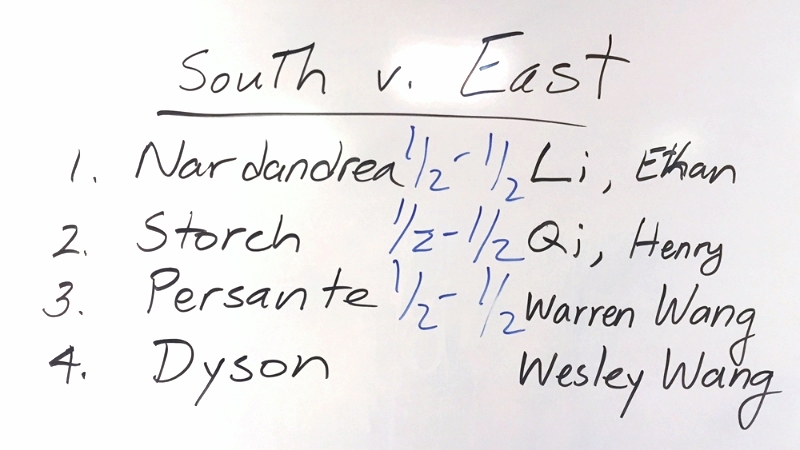 South v. East
1. Nardandrea 1/2 - 1/2 Li, Ethan
2. Storch 1/2 - 1/2 Qi, Henry
3. Persante 1/2 - 1/2 Warren Wang
4. Dyson Wesley Wang